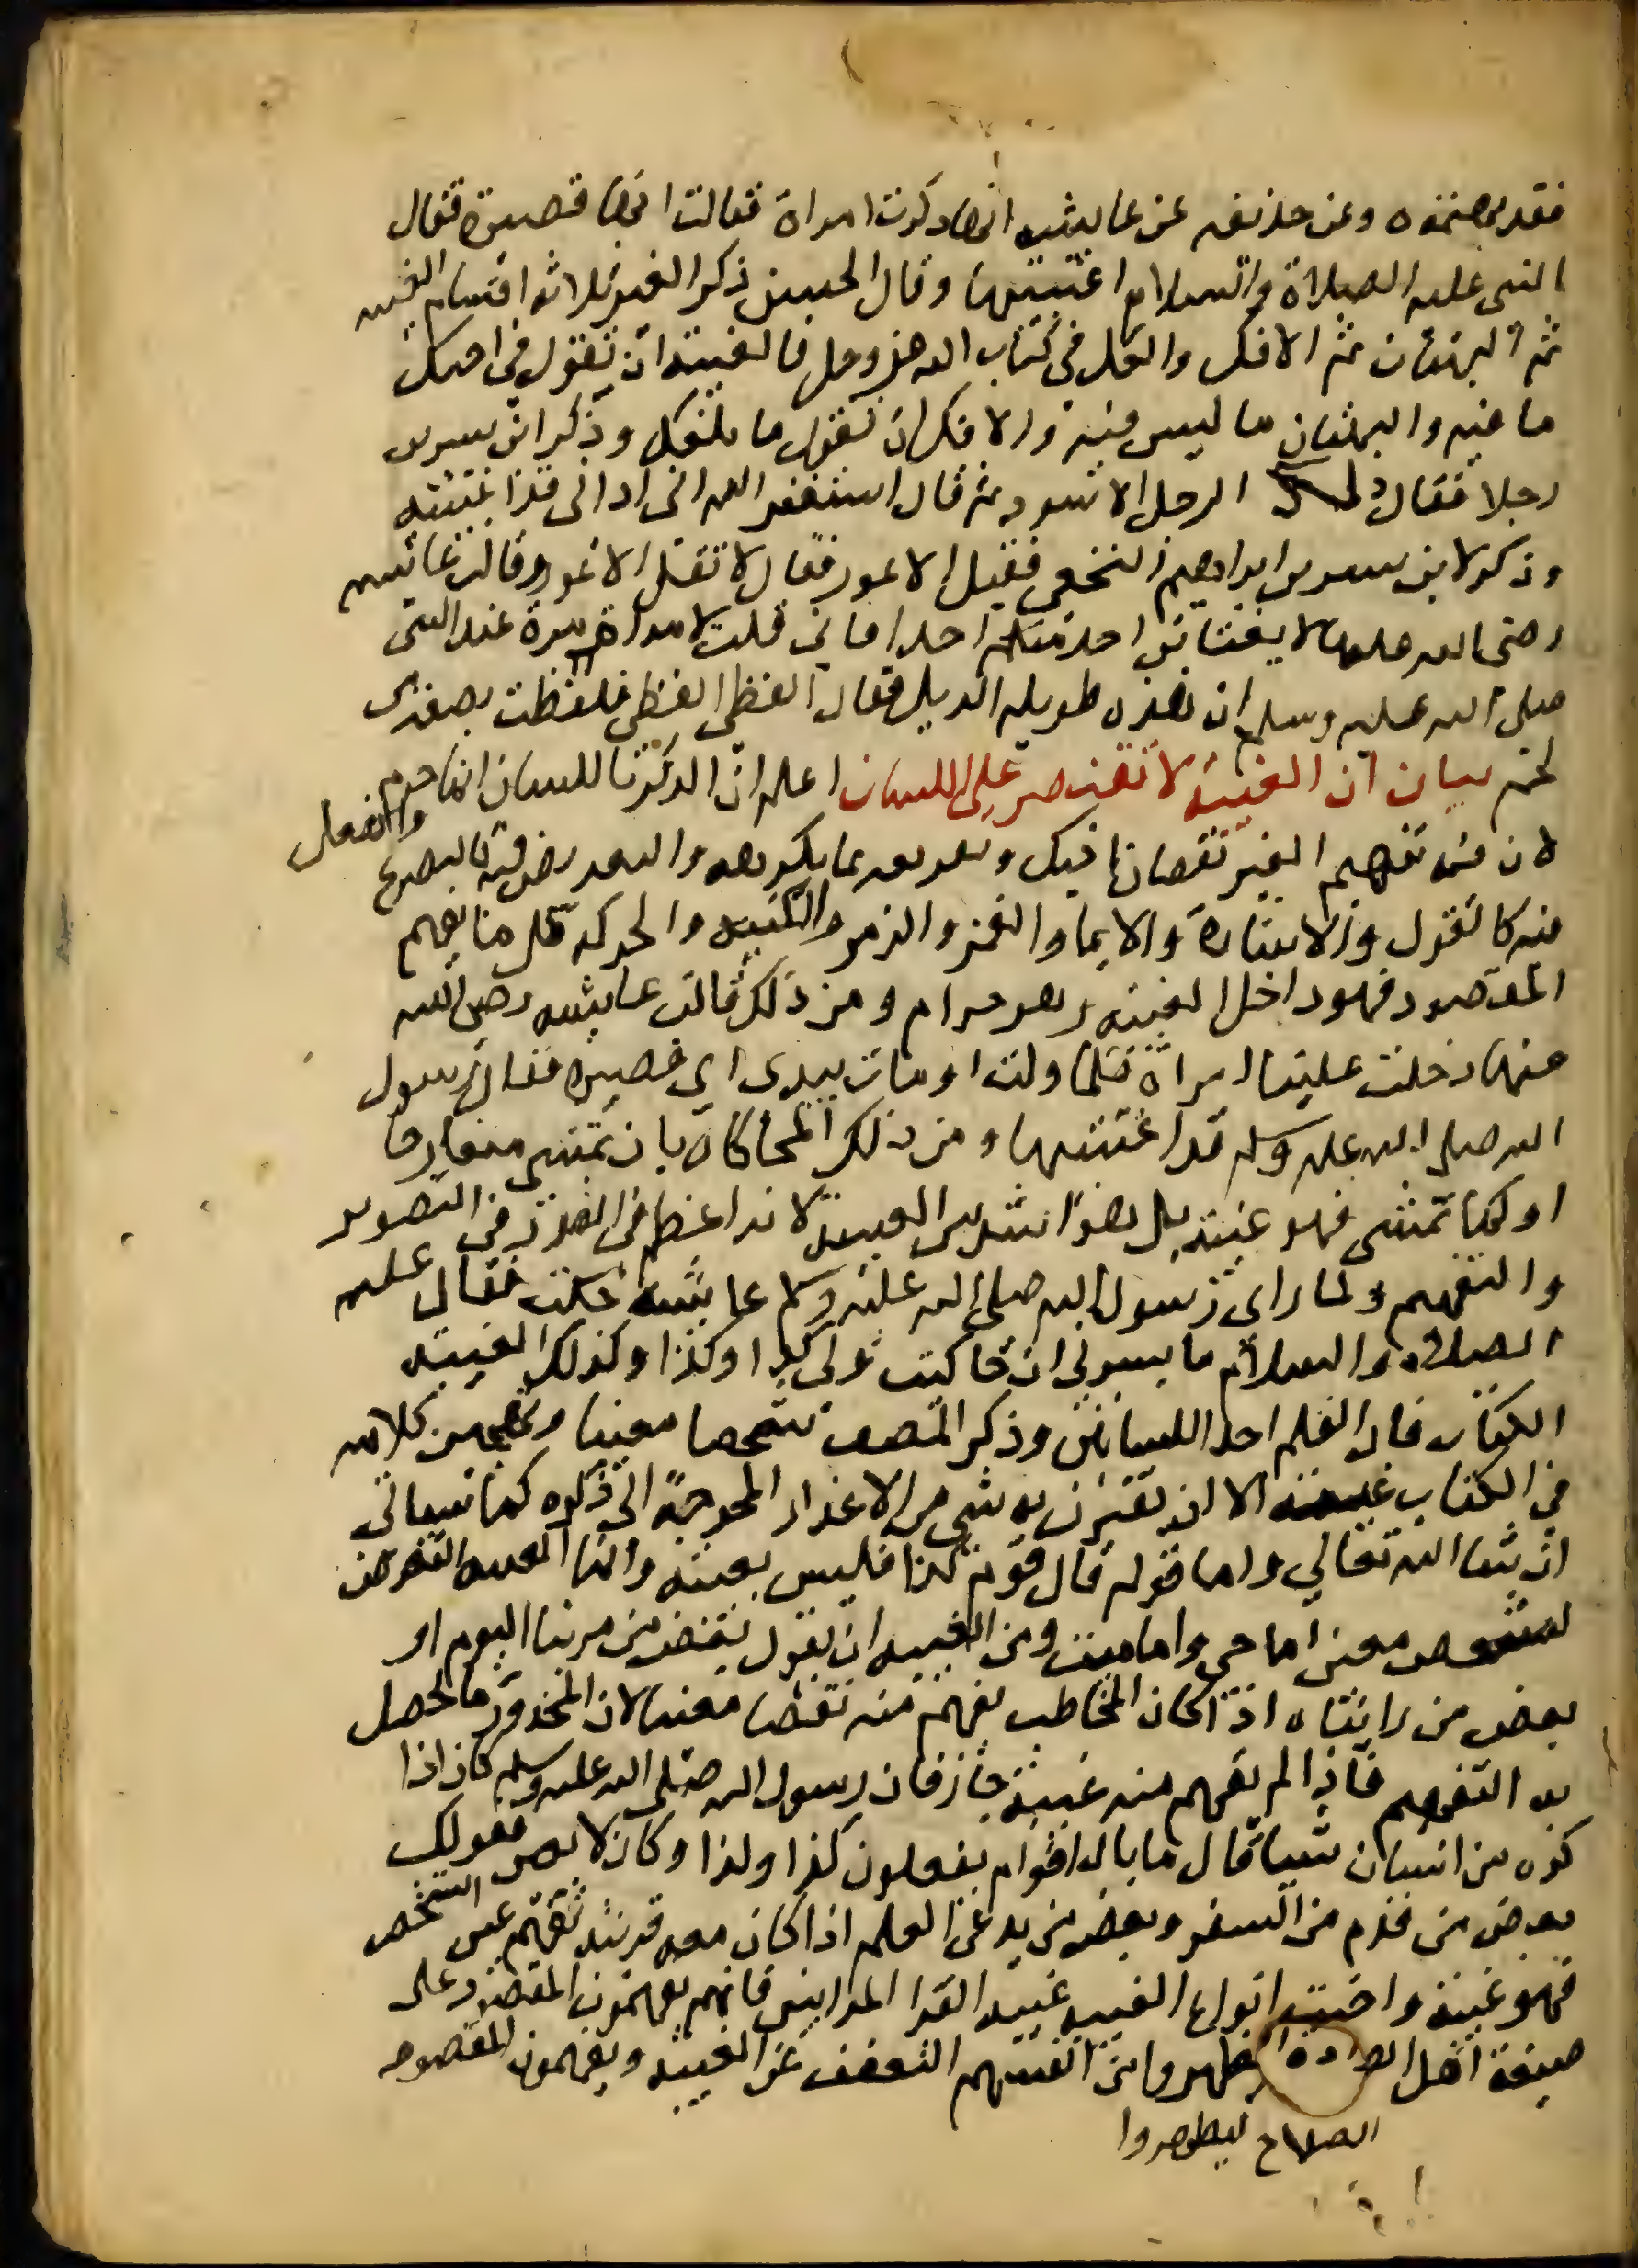 فقد مضغتموه وعن حذيفه عن عايشه انها ذكرت امراة فقالت انها قصيرة فقال
النبى عليه الصلاة والسلام اغتبتيها وقال الحسن ذكر الغير ثلاثة اقسام الغيبه
ثم البهتان ثم الافك والكل فى كتاب الله عز وجل فالغيبة ان تقول في اخيك
ما فيه والبهتان ما ليس فيه والافك ان تقول ما بلغك وذكر ابن سيرين
رجلا فقال ذلك الرجل الاسود ثم قال استغفر الله انى ارانى قد اغتبته
وذكر لابن سيرين ابراهيم النخعي فقيل الاعور فقال لا تقل الاعور وقالت عائشه
رضى الله عنها لا يغتابن احد منكم احدا فانى قلت لامراة مرة عند النبى
صلى الله عليه وسلم ان هذه طويله الذيل فقال الفظى الفظى فلفظت بصغدى
لحم بيان ان الغيبة لا تقتصر على اللسان اعلم ان الذكر باللسان انما حرم
لان فيه تفهيم الغير نقصان اخيك وتعريفه بما يكرهه والتعريض فيه كالتصريح والفعل
فيه كالقول والاشارة والايما والغمز والرمز والكتبه والحركه وكل ما يفهم
المقصود فهو داخل الغيبه وهو حرام ومن ذلك قالت عايشه رضى الله
عنها دخلت علينا امراة فلما ولت اومات بيدى اى قصيرة فقال رسول
الله صلى الله عليه وسلم قد اغتبتيها ومن ذلك المحاكاه بان تمشى متعارجا
او كما تمشى فهو غيبة بل هو اشد من الغيبة لانه اعظم فى التصوير
والتفهيم ولما راى رسول الله صلى الله عليه وسلم عايشه حكت فقال عليه
الصلاه والسلام ما يسرنى ان حاكيت ولى كذا وكذا وكذلك الغيبه
الكتاب فان القلم احد اللسانين وذكر المصنف شخصا معينا وتهجين كلامه
فى الكتاب غيبة الا ان يقترن به شى من الاعذار المحوجة الى ذكره كما سياتى
ان شاء الله تعالي واما قوله قال قوم كذا فليس بغيبة وانما الغيبه التعرض
لشخص معين اما حى واما ميت ومن الغيبه ان يقول بعض من مر بنا اليوم او
بعض من رايناه اذا كان المخاطب يفهم منه شخصا معينا لان المحذور ما حصل
به التفهيم فاذا لم يفهم منه غيبة جاز فان رسول الله صلى الله عليه وسلم كان اذا
كره من انسان شيا قال ما بال اقوام يفعلون كذا وكذا وكان لا يعين فقولك
بعض من قدم من السفر وبعض من يدعى العلم اذا كان معه قرينه تفهم عين الشخص
فهو غيبة واخبث انواع الغيبه غيبه القرا المرايين فانهم يفهمون المقصود على
صيغة اهل الصلاح ليظهروا من انفسهم التعفف عن الغيبه ويفهمون المقصود
الصلاح ليظهروا